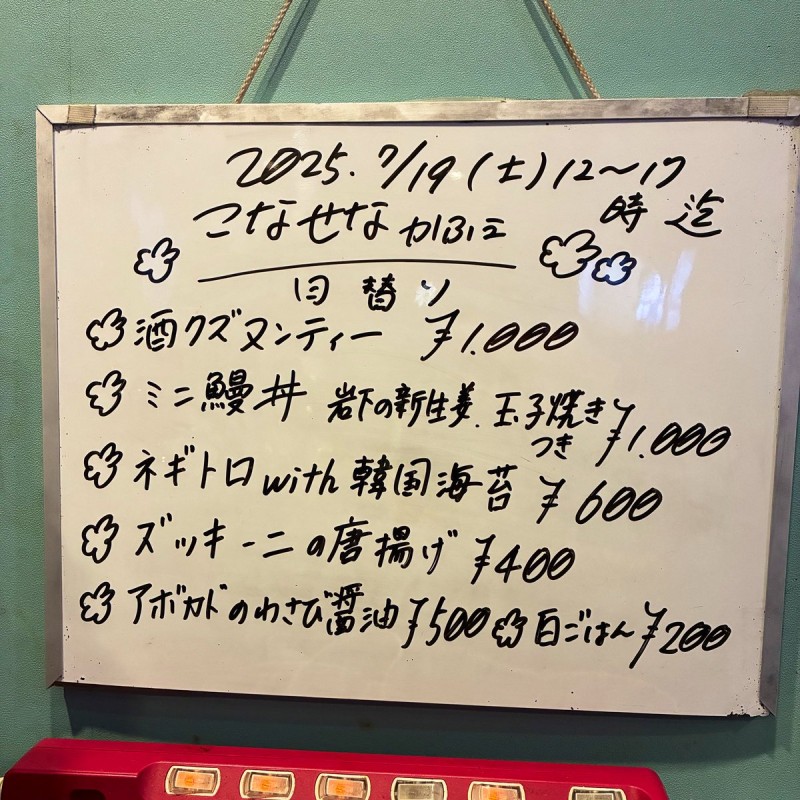 2025.7/19(土)12〜17
時迄
こなせなかふぇ
日替り
酒クズヌンティー ¥1.000
ミニ鰻丼 岩下の新生姜.玉子焼き
つき ¥1.000
ネギトロwith韓国海苔 ¥600
ズッキーニの唐揚げ ¥400
アボカドのわさび醤油¥500 白ごはん¥200